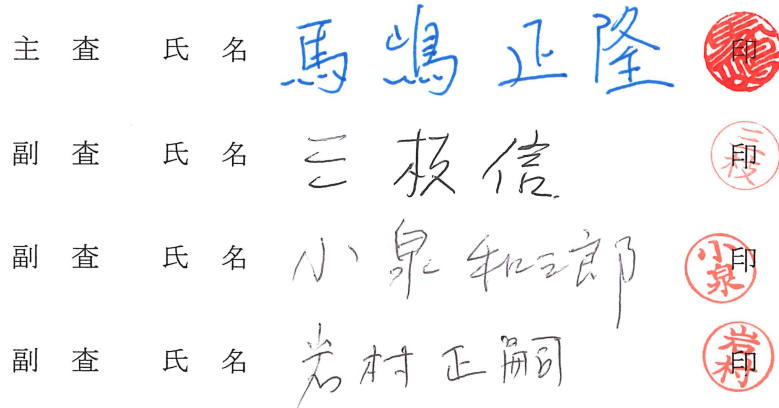 主査 氏名 馬嶋正隆 印
副査 氏名 三枝信 印 三枝
副査 氏名 小泉和三郎 印 小泉
副査 氏名 岩村正嗣 印 岩村